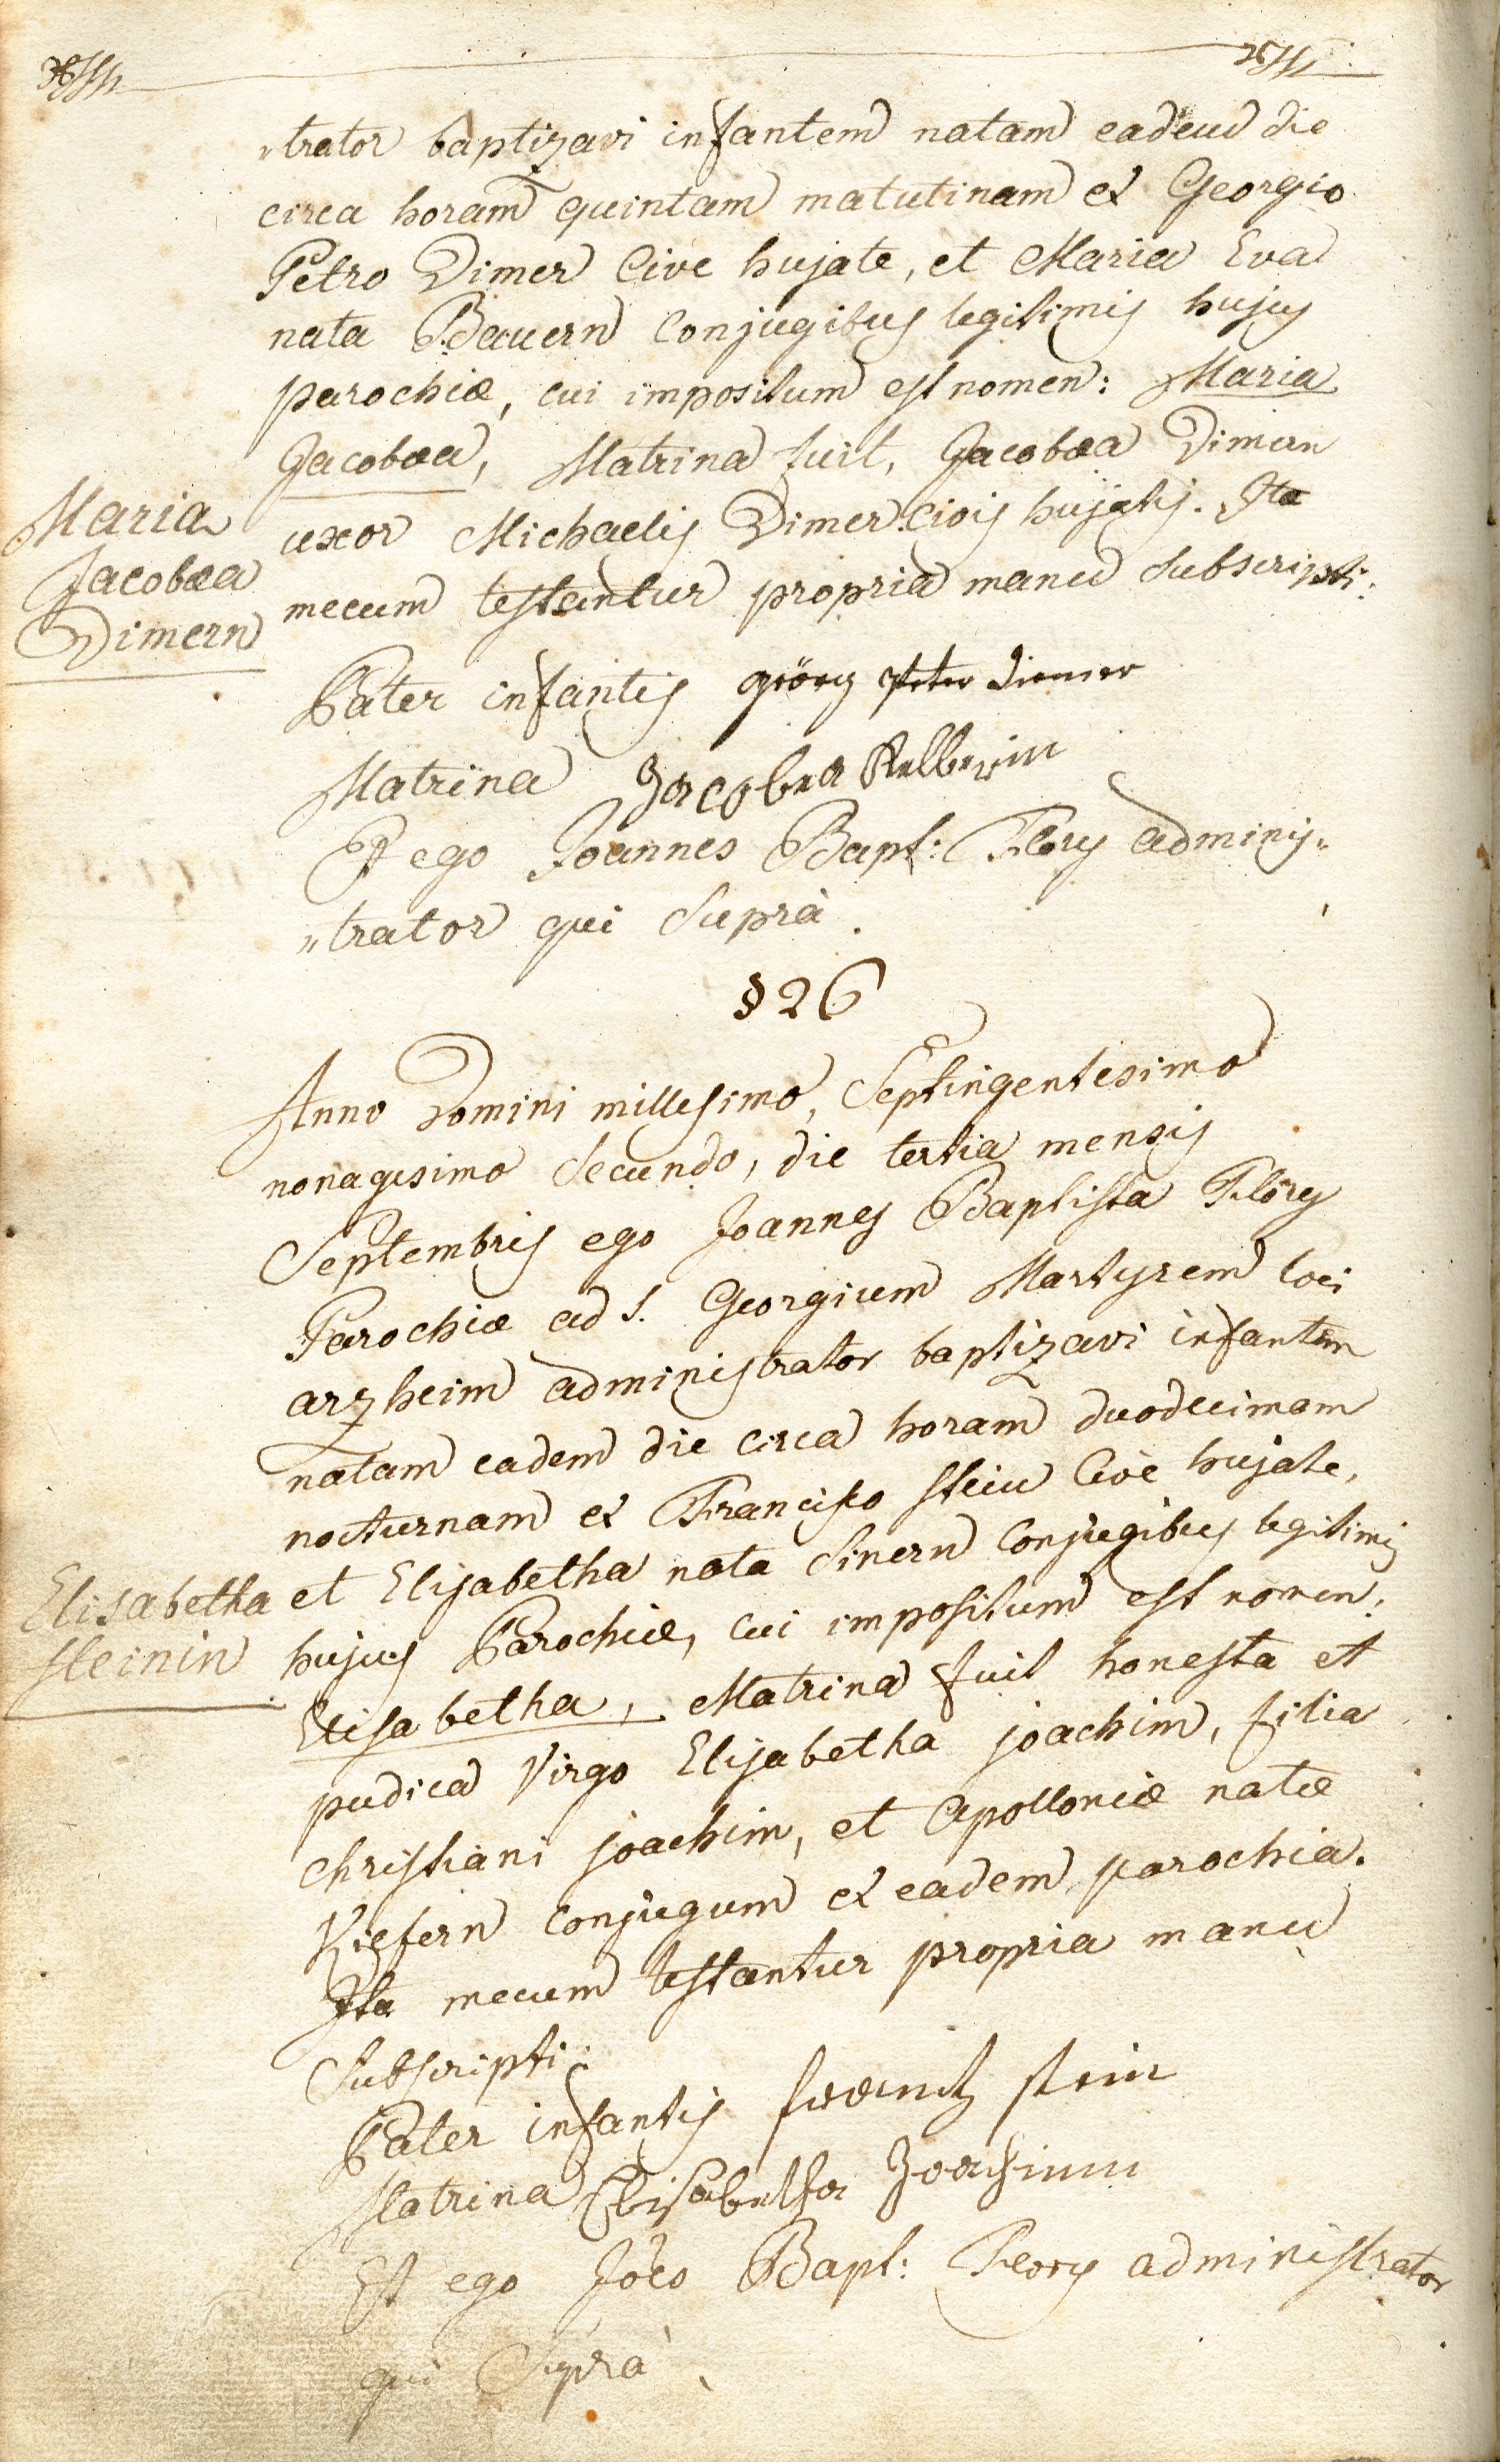 „trator baptizavi infantem natam eadem die
circa horam quintam matutinam ex Georgio
Petro Dimer Cive hujate, et Maria Eva
nata Bauern Conjugibus legitimis hujus
parochiæ, cui impositum est nomen: Maria
Jacobæa, Matrina fuit, Jacobæa Dimern
uxor Michaelis Dimer Civis hujatis. Ita
mecum testantur propria manu Subscripti:
Maria
Jacobæa
Dimern
Pater infantis görg peter diemer
Matrina Jacobea Kelberin
Et ego Joannes Bapt: Flory adminis„
„trator qui Suprà.
§ 26
Anno Domini millesimo, Septingentesimo
nonagesimo Secundo, die tertia mensis
Septembris ego Joannes Baptista Flöry
Parochiæ ad S. Georgium Martyrem loci
arzheim administrator baptizavi infantem
natam eadem die circa horam duodecimam
nocturnam ex Francisco Stein Cive hujate,
et Elisabetha nata Sinern Conjugibus legitimis
hujus Parochiæ, cui impositum est nomen:
Elisabetha, Matrina fuit honesta et
pudica Virgo Elisabetha joachim, filia
Christiani joachim, et Apolloniæ natæ
Kiefern Conjugum ex eadem parochia.
Ita mecum testantur propria manu
Subscripti:
Elisabetha
Steinin
Pater infantis frantz stein
Matrina Elisabetha Joachimin
Et ego Joës Bapt: Flory administrator
qui Suprà